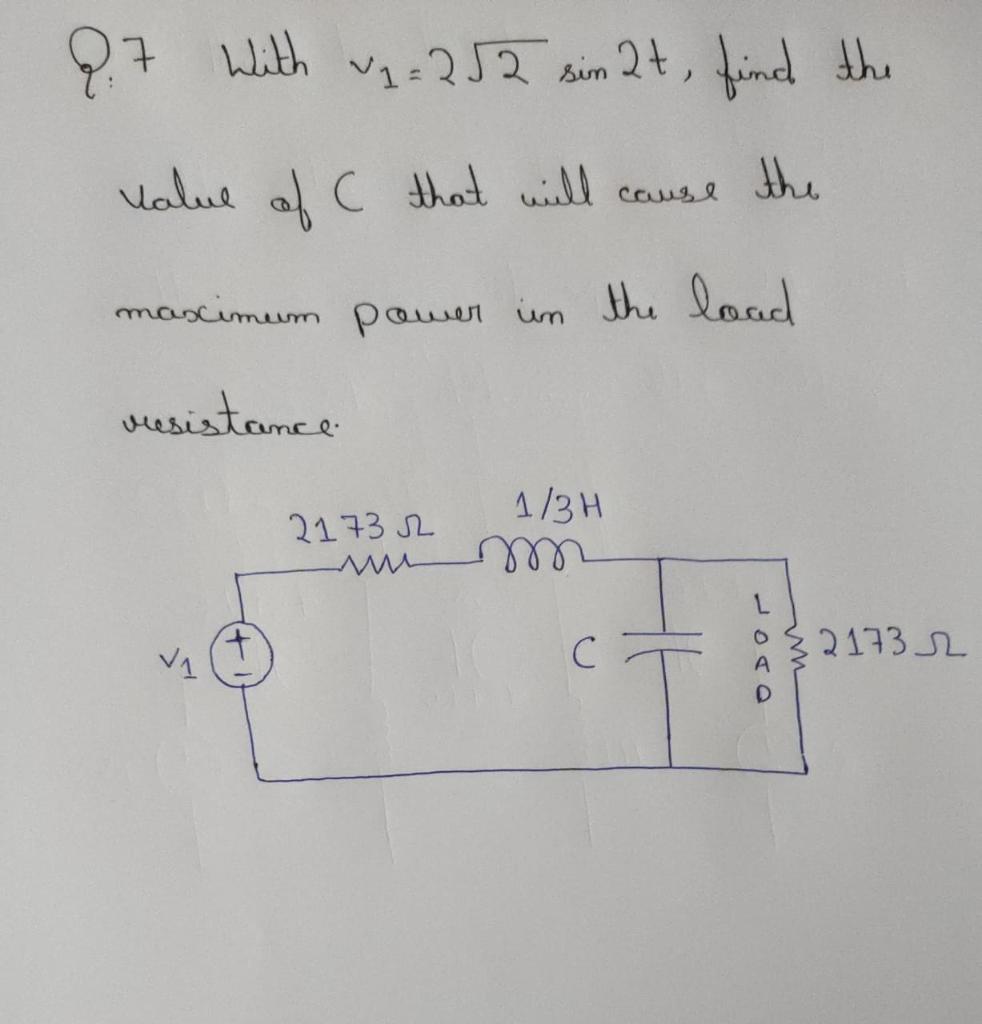 Q.7 With v₁ = 2√2 sin 2t, find the
value of C that will cause the
maximum power in the load
resistance.
1/3 H
2173 Ω
V₁
+
−
C
LOAD
2173 Ω